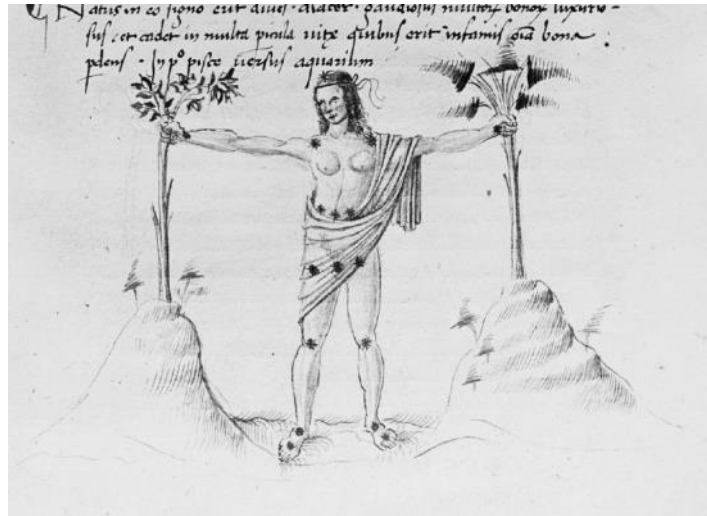 Natus in eo signo erit dives · audax · gaudiosus multorum bonorum luxurio-
sus · et cadet in multa picula vite quibus erit infamis bona
pdens · In p° pisce versus aquarium